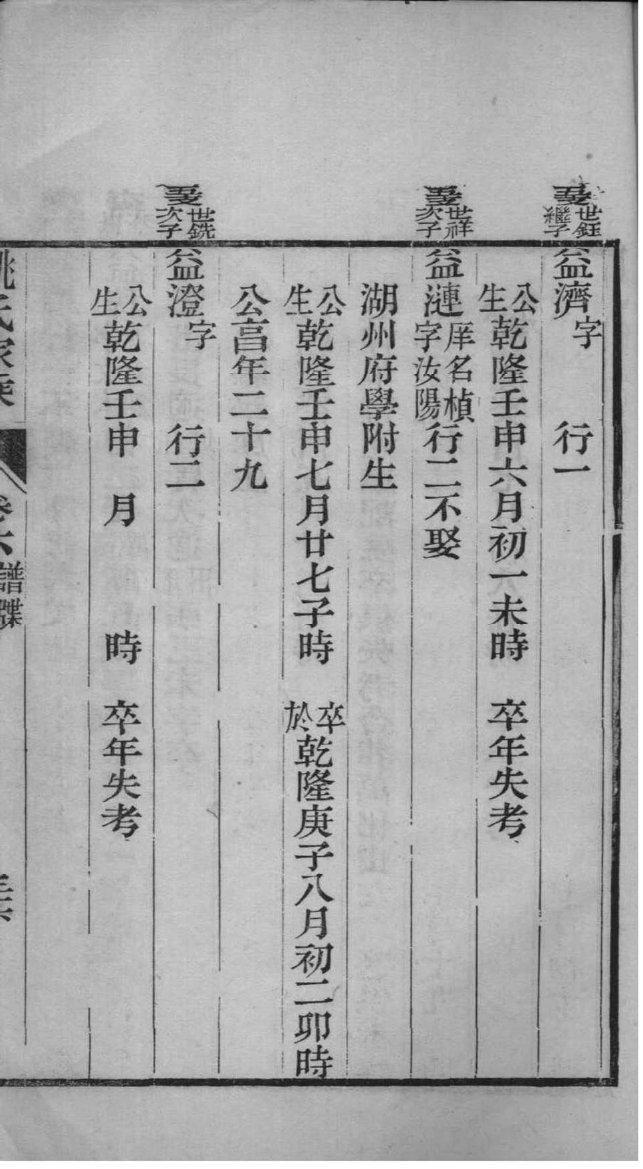 世鈺
繼子
益濟字 行一
公生乾隆壬申六月初一未時 卒年失考
世祥
次子
益漣庠名楨字汝陽行二不娶
湖州府學附生
公生乾隆壬申七月廿七子時 卒於乾隆庚子八月初二卯時
公亯年二十九
世銑
次子
益澄字 行二
公生乾隆壬申 月 時 卒年失考
姚氏家乘 卷六 譜牒